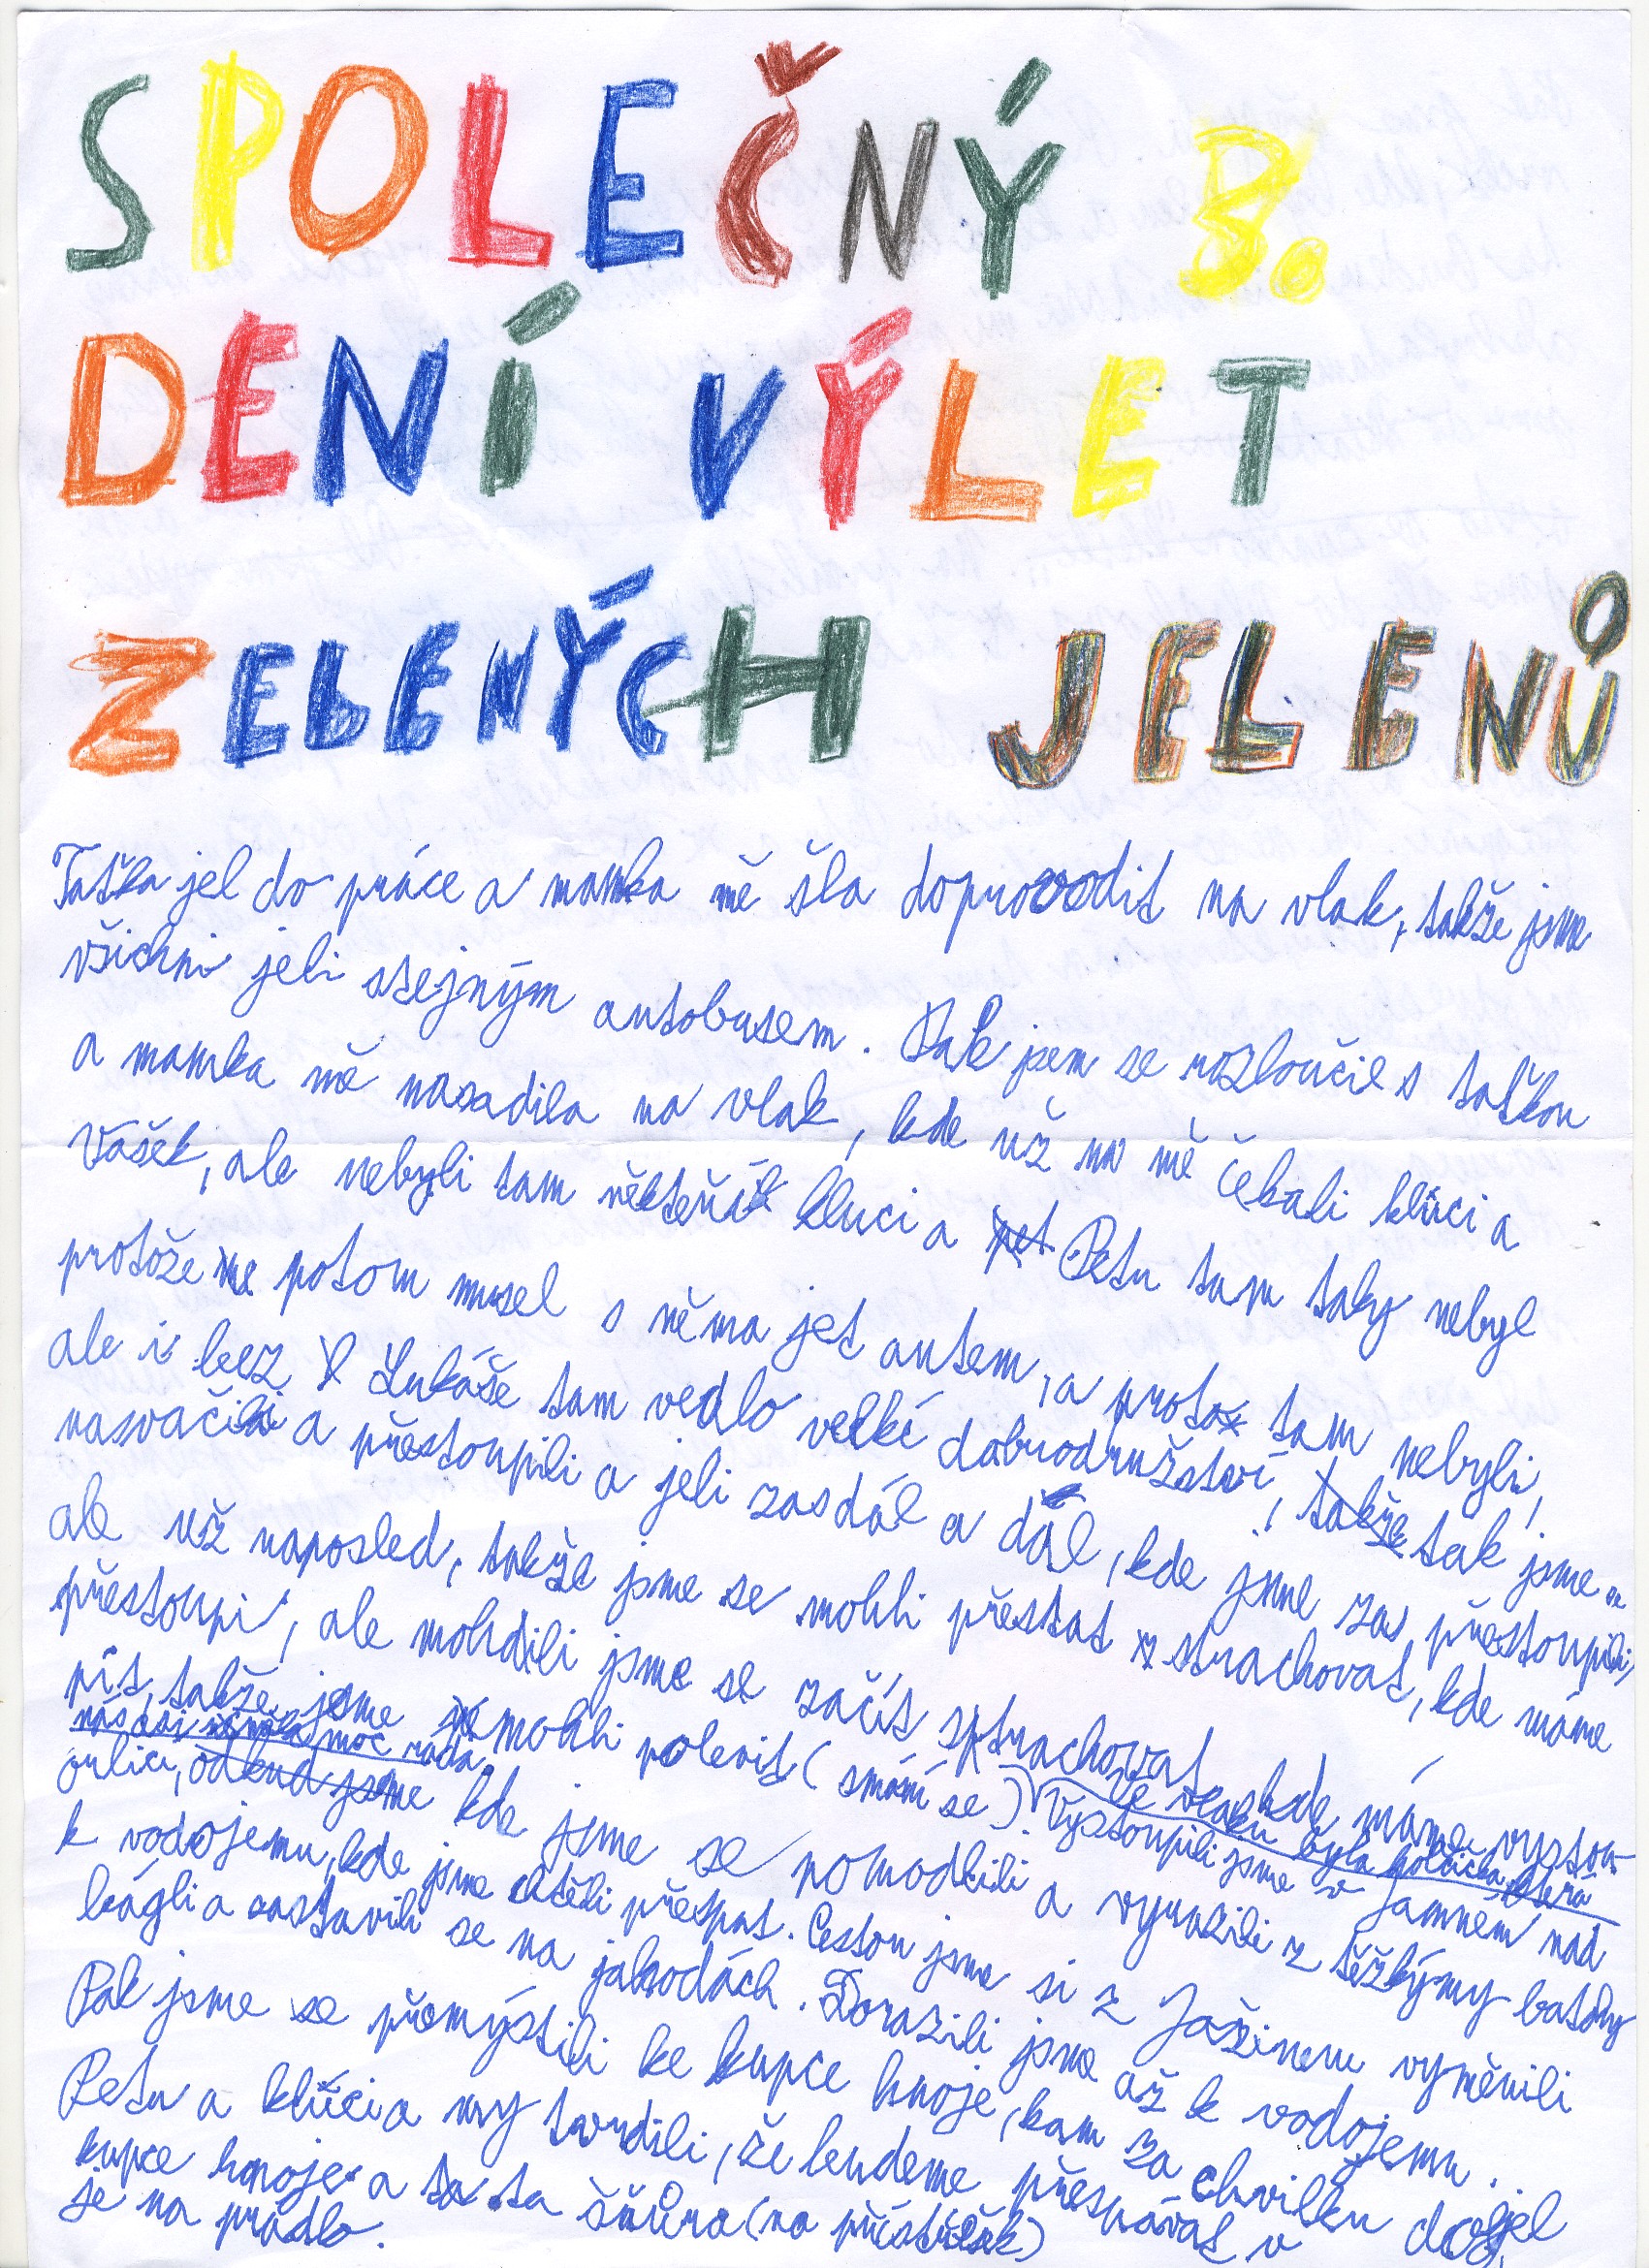 SPOLEČNÝ 3.
DENÍ VÝLET
ZELENÝCH JELENŮ
Taťka jel do práce a mamka mě šla doprovodit na vlak, takže jsme
všichni jeli stejným autobusem. Pak jsem se rozloučil s taťkou
a mamka mě nasadila na vlak, kde už na mě čekali klúci a
Vašek, ale nebyli tam někteří kluci a pet Peťu tam taky nebyl
protože potom musel s něma jet autem, a proto tam nebyli,
ale i bez Lukáše tam vedlo velké dobrodružství, takže tak jsme se
nasvačili a přestoupili a jeli zas dál a dál, kde jsme zas přestoupili,
ale už naposled, takže jsme se mohli přestat strachovat, kde máme
přestoupi, ale mohdili jsme se začít strachovat kde máme vystou-
pit, takže jsme mohli polevit (smání se). Ve vlaku byla holčička, která
nás asi měla moc ráda. Vystoupili jsme v Jamném nad
orlicí, odkud jsme kde jsme se pomodlili a vyrazili z těžkýmy batohy
k vodojemu, kde jsme chtěli přespat. Cestou jsme si z Jašinem vyměnili
bágli a zastavili se na jahodách. Dorazili jsme až k vodojemu.
Pak jsme se přemýstili ke kupce hnoje, kam za chvilku dojel
Peťu a klúci a my tvrdili, že budeme přespávat v
kupce hnoje a ta šňůra (na přístřešek)
je na prádlo.